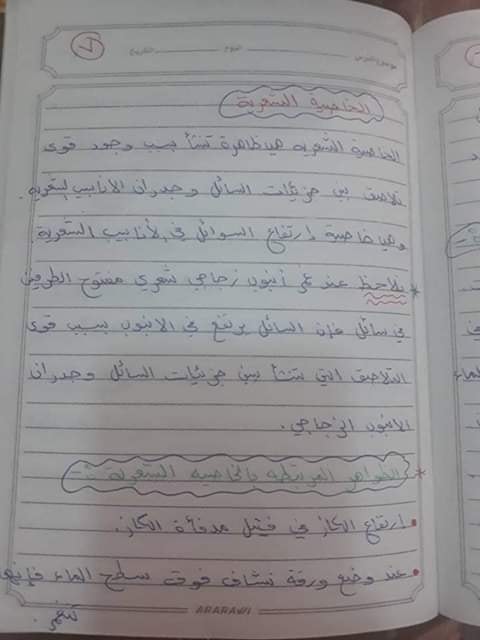 موضوع الدرس اليوم التاريخ
الخاصية الشعرية
الخاصية الشعرية هي ظاهرة تنشأ بسبب وجود قوى
تلاصق بين جزيئات السائل وجدران الأنابيب الشعرية.
وهي خاصية ارتفاع السوائل في الأنابيب الشعرية
* يلاحظ عند غمر أنبوب زجاجي شعري مفتوح الطرفين
في سائل فإن السائل يرتفع في الانبوب بسبب قوى
التلاصق التي تنشأ بين جزيئات السائل وجدران
الانبوب الزجاجي.
* الظواهر المرتبطة بالخاصية الشعرية :-
• ارتفاع الكاز في فتيل مدفأة الكاز.
• عند وضع ورقة نشاف فوق سطح الماء فإنها
تنغمر.
ARARAWI